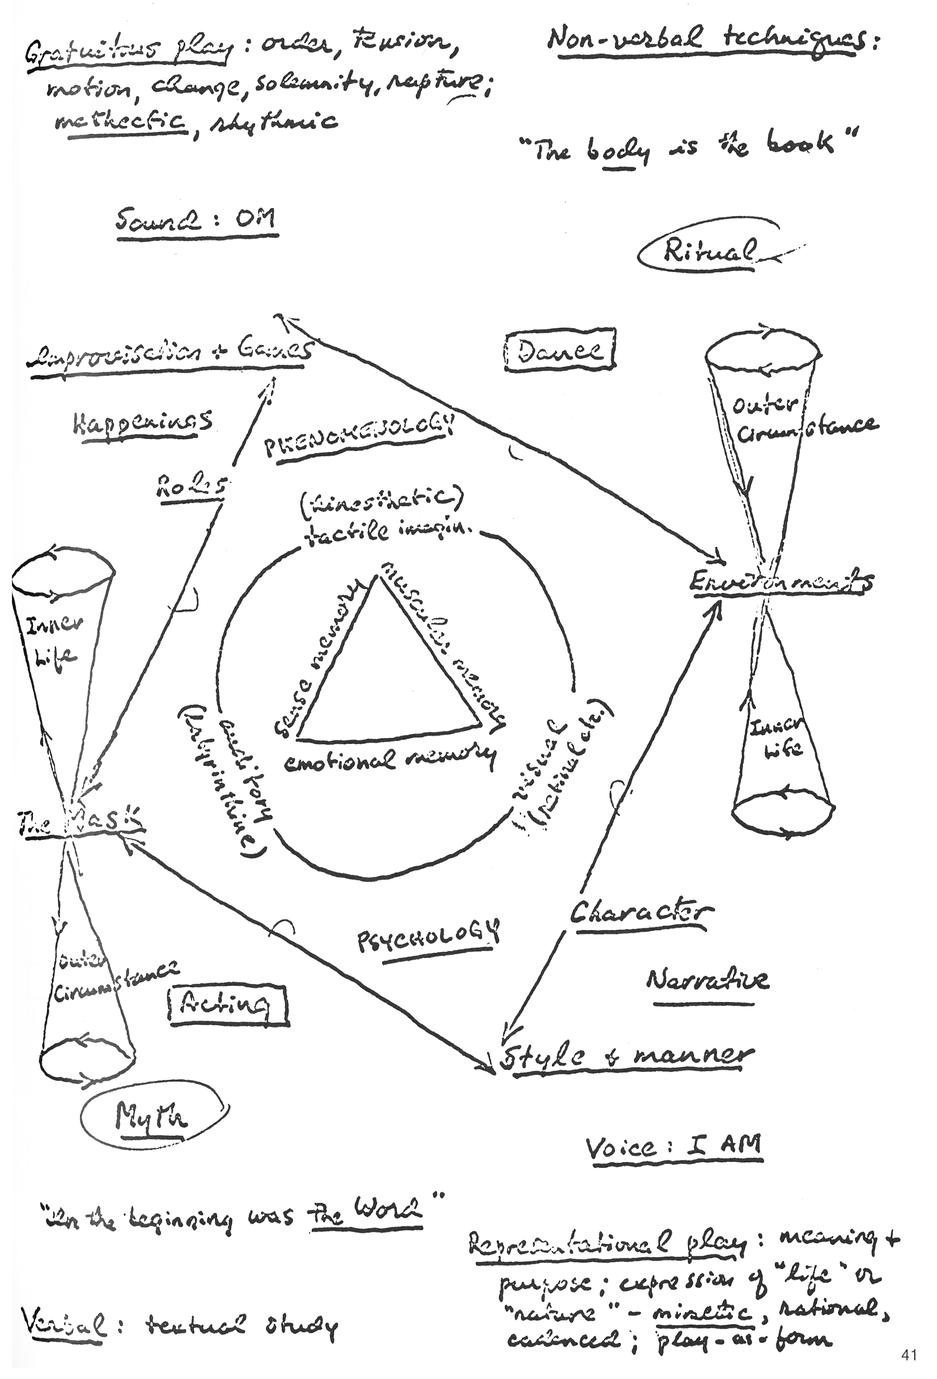 Gratuitous play: order, tension,
motion, change, solemnity, rapture;
methectic, rhythmic
Non-verbal techniques:
"The body is the book"
Sound: OM
Ritual
Improvisation + Games
Dance
Happenings
PHENOMENOLOGY
Outer
Circumstance
Roles
(kinesthetic)
tactile imagin.
Environments
Inner
Life
sense memory
muscular memory
emotional memory
auditory
(labyrinthine)
visual
(retinal etc.)
Inner
Life
The Mask
Character
PSYCHOLOGY
Outer
Circumstance
Acting
Narrative
Style + manner
Myth
Voice: I AM
"In the beginning was the Word"
Representational play: meaning +
purpose; expression of "life" or
"nature" - mimetic, rational,
cadenced; play-as-form
Verbal: textual study
41